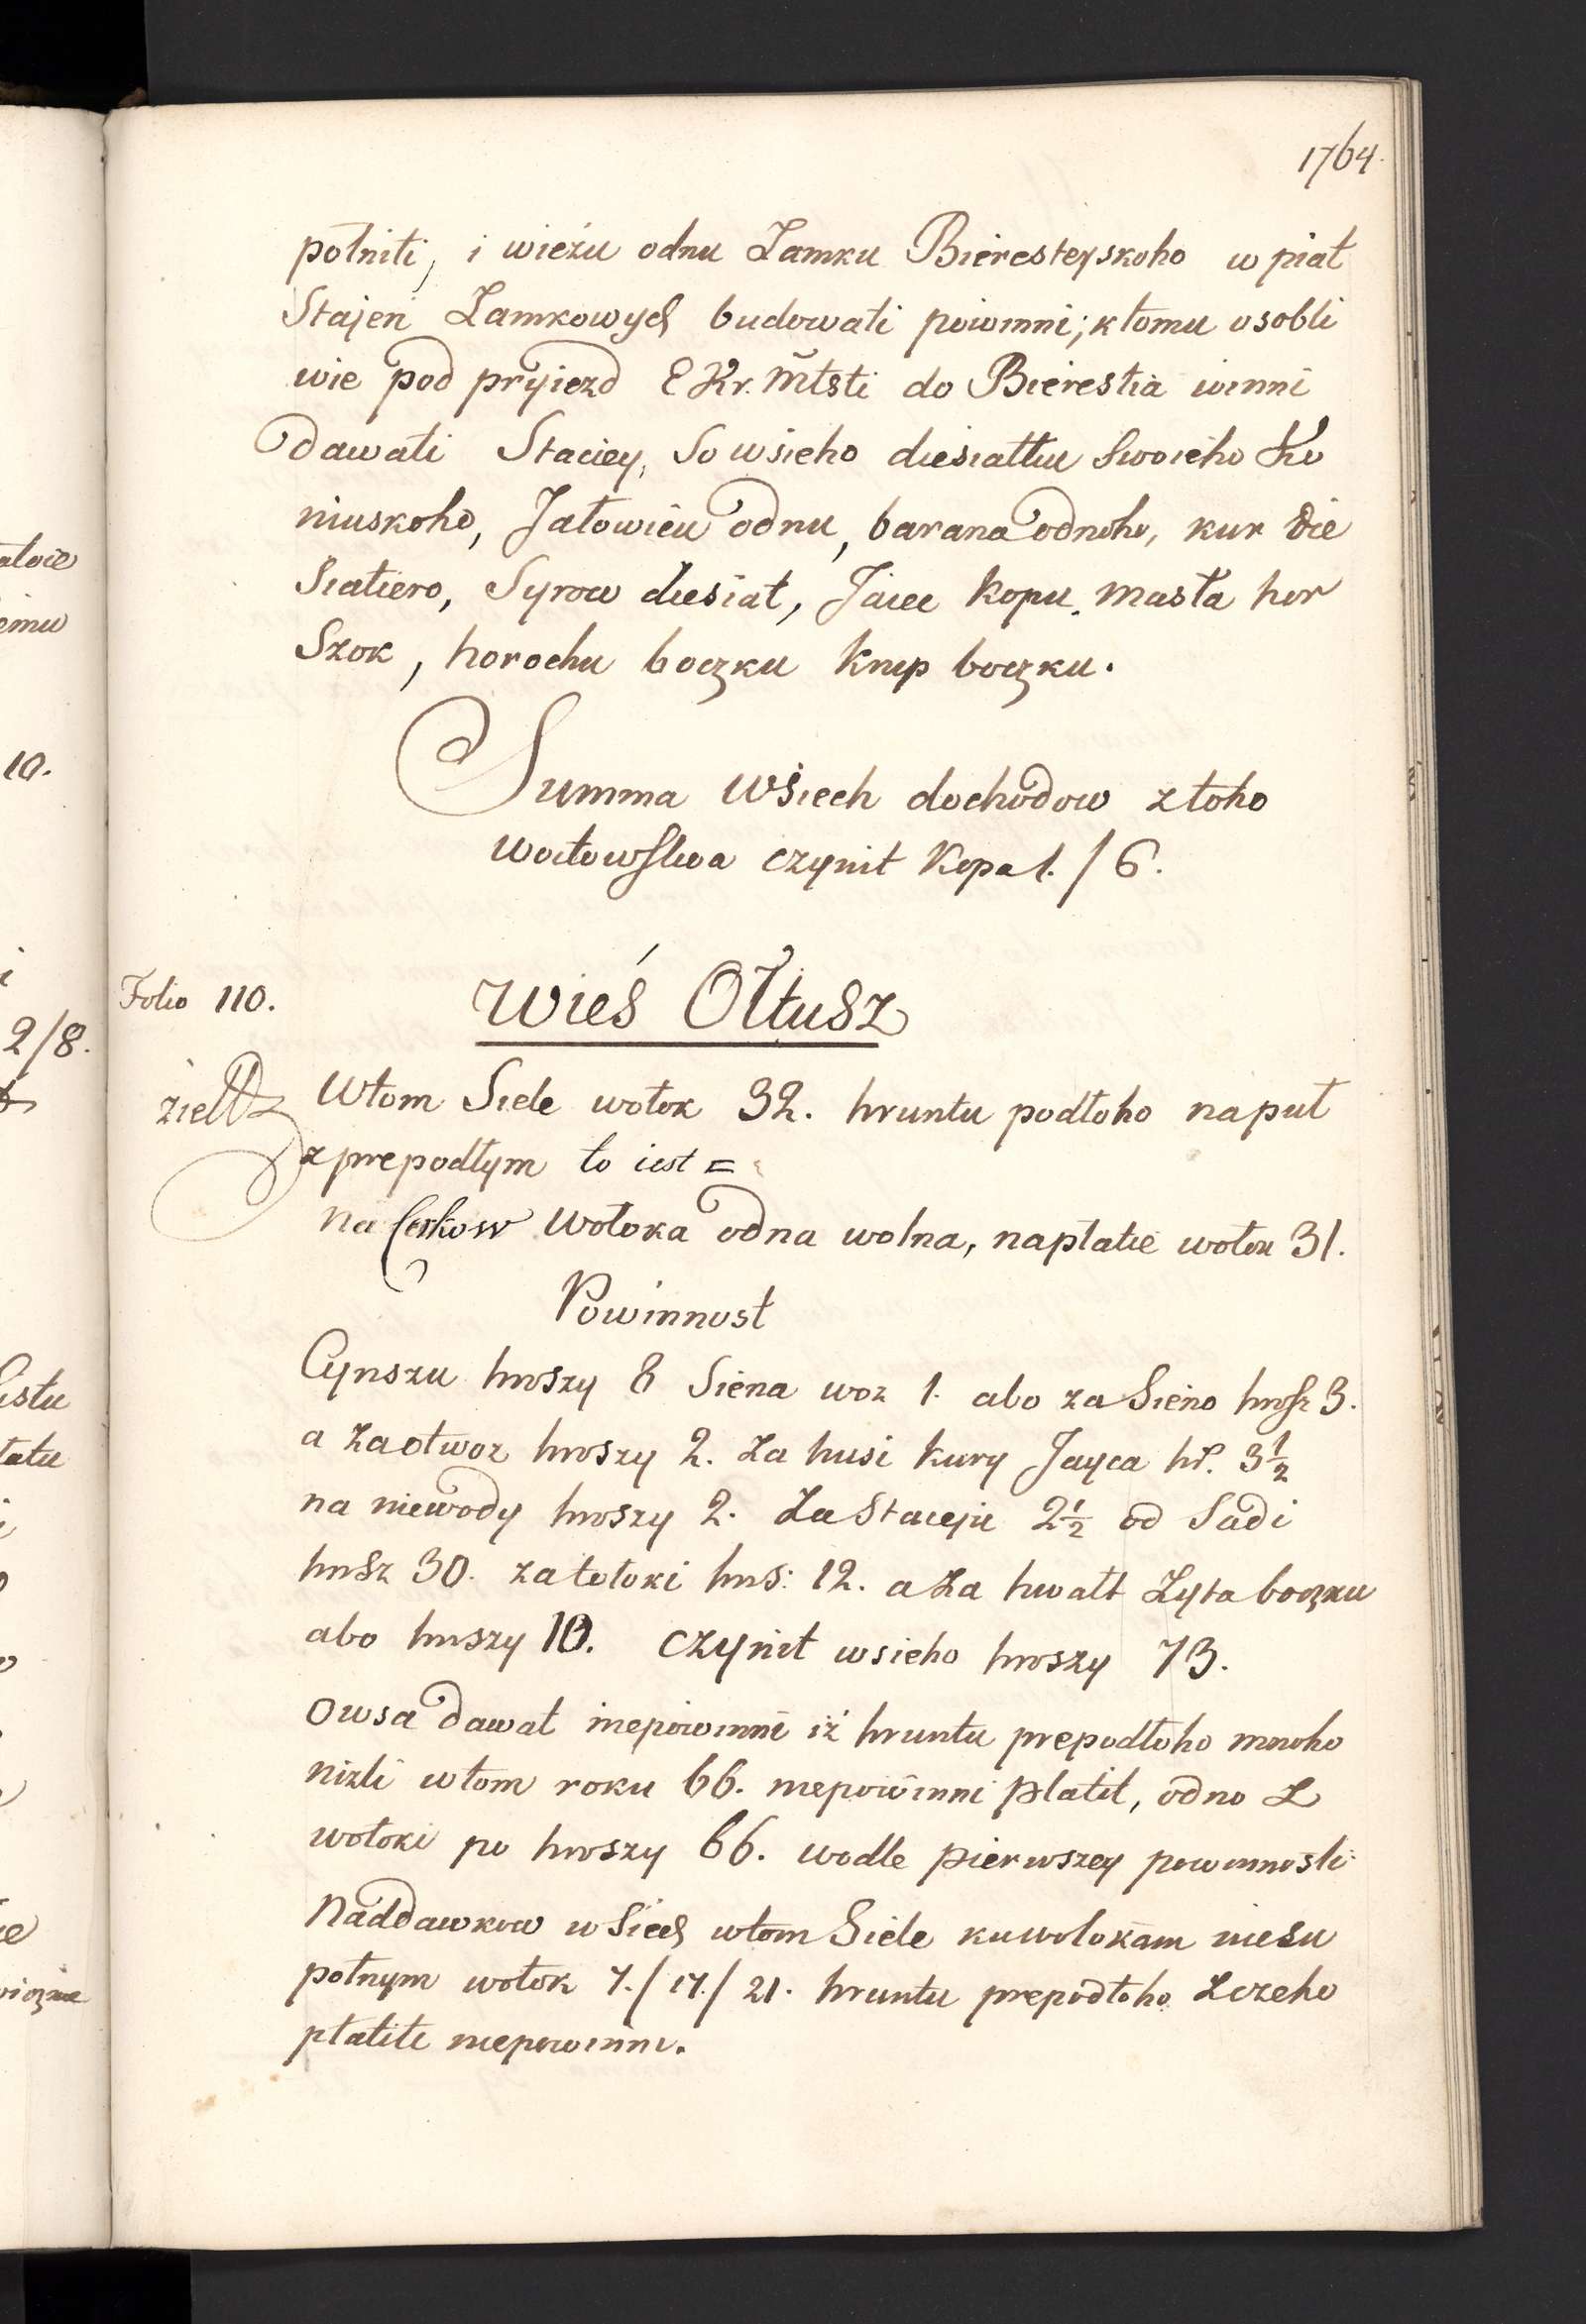 1764.
połniti, i wieżu odnu Zamku Bieresteyskoho w piat
Stajen Zamkowych budowati powinni; k tomu osobli
wie pod pryiezd E Kr. Mtsti do Bierestia winni
dawati Staciey, So wsieho diesiatku Swoieho Ko
niuskoho, Jałowicu odnu, barana odnoho, kur die
siatiero, Syrow diesiat, Jaiec Kopu, masła hor
Szok, horochu boczku Krup boczku.
Summa wsiech dochodow z toho
woitowstwa czynit Kopa 1./6.
Folio 110.
Wieś Ołtusz
W tom Siele wołok 32. hruntu podłoho na puł
z prepodłym to iest =
na Cerkow wołoka odna wolna, na płatie wołok 31.
Powinnost
Cynszu hroszy 8 Siena woz 1. abo za Sieno hrosz 3.
a za otwoz hroszy 2. Za husi kury Jayca hr. 3½
na niewody hroszy 2. Za Staceju 2½ od Sadi
hrosz 30. za tołoki hros: 12. a za hwałt Żyta boczku
abo hroszy 10. czynit wsieho hroszy 73.
Owsa dawat niepowinni iż hruntu prepodłoho mnoho
niżli w tom roku 66. niepowinni płatit, odno z
wołoki po hroszy 66. wodle pierwszey powinnosti
Naddawkow wsiech w tom Siele ku wołokam niesu
połnym wołok 7./17./21. hruntu prepodłoho z czeho
płatiti niepowinni.